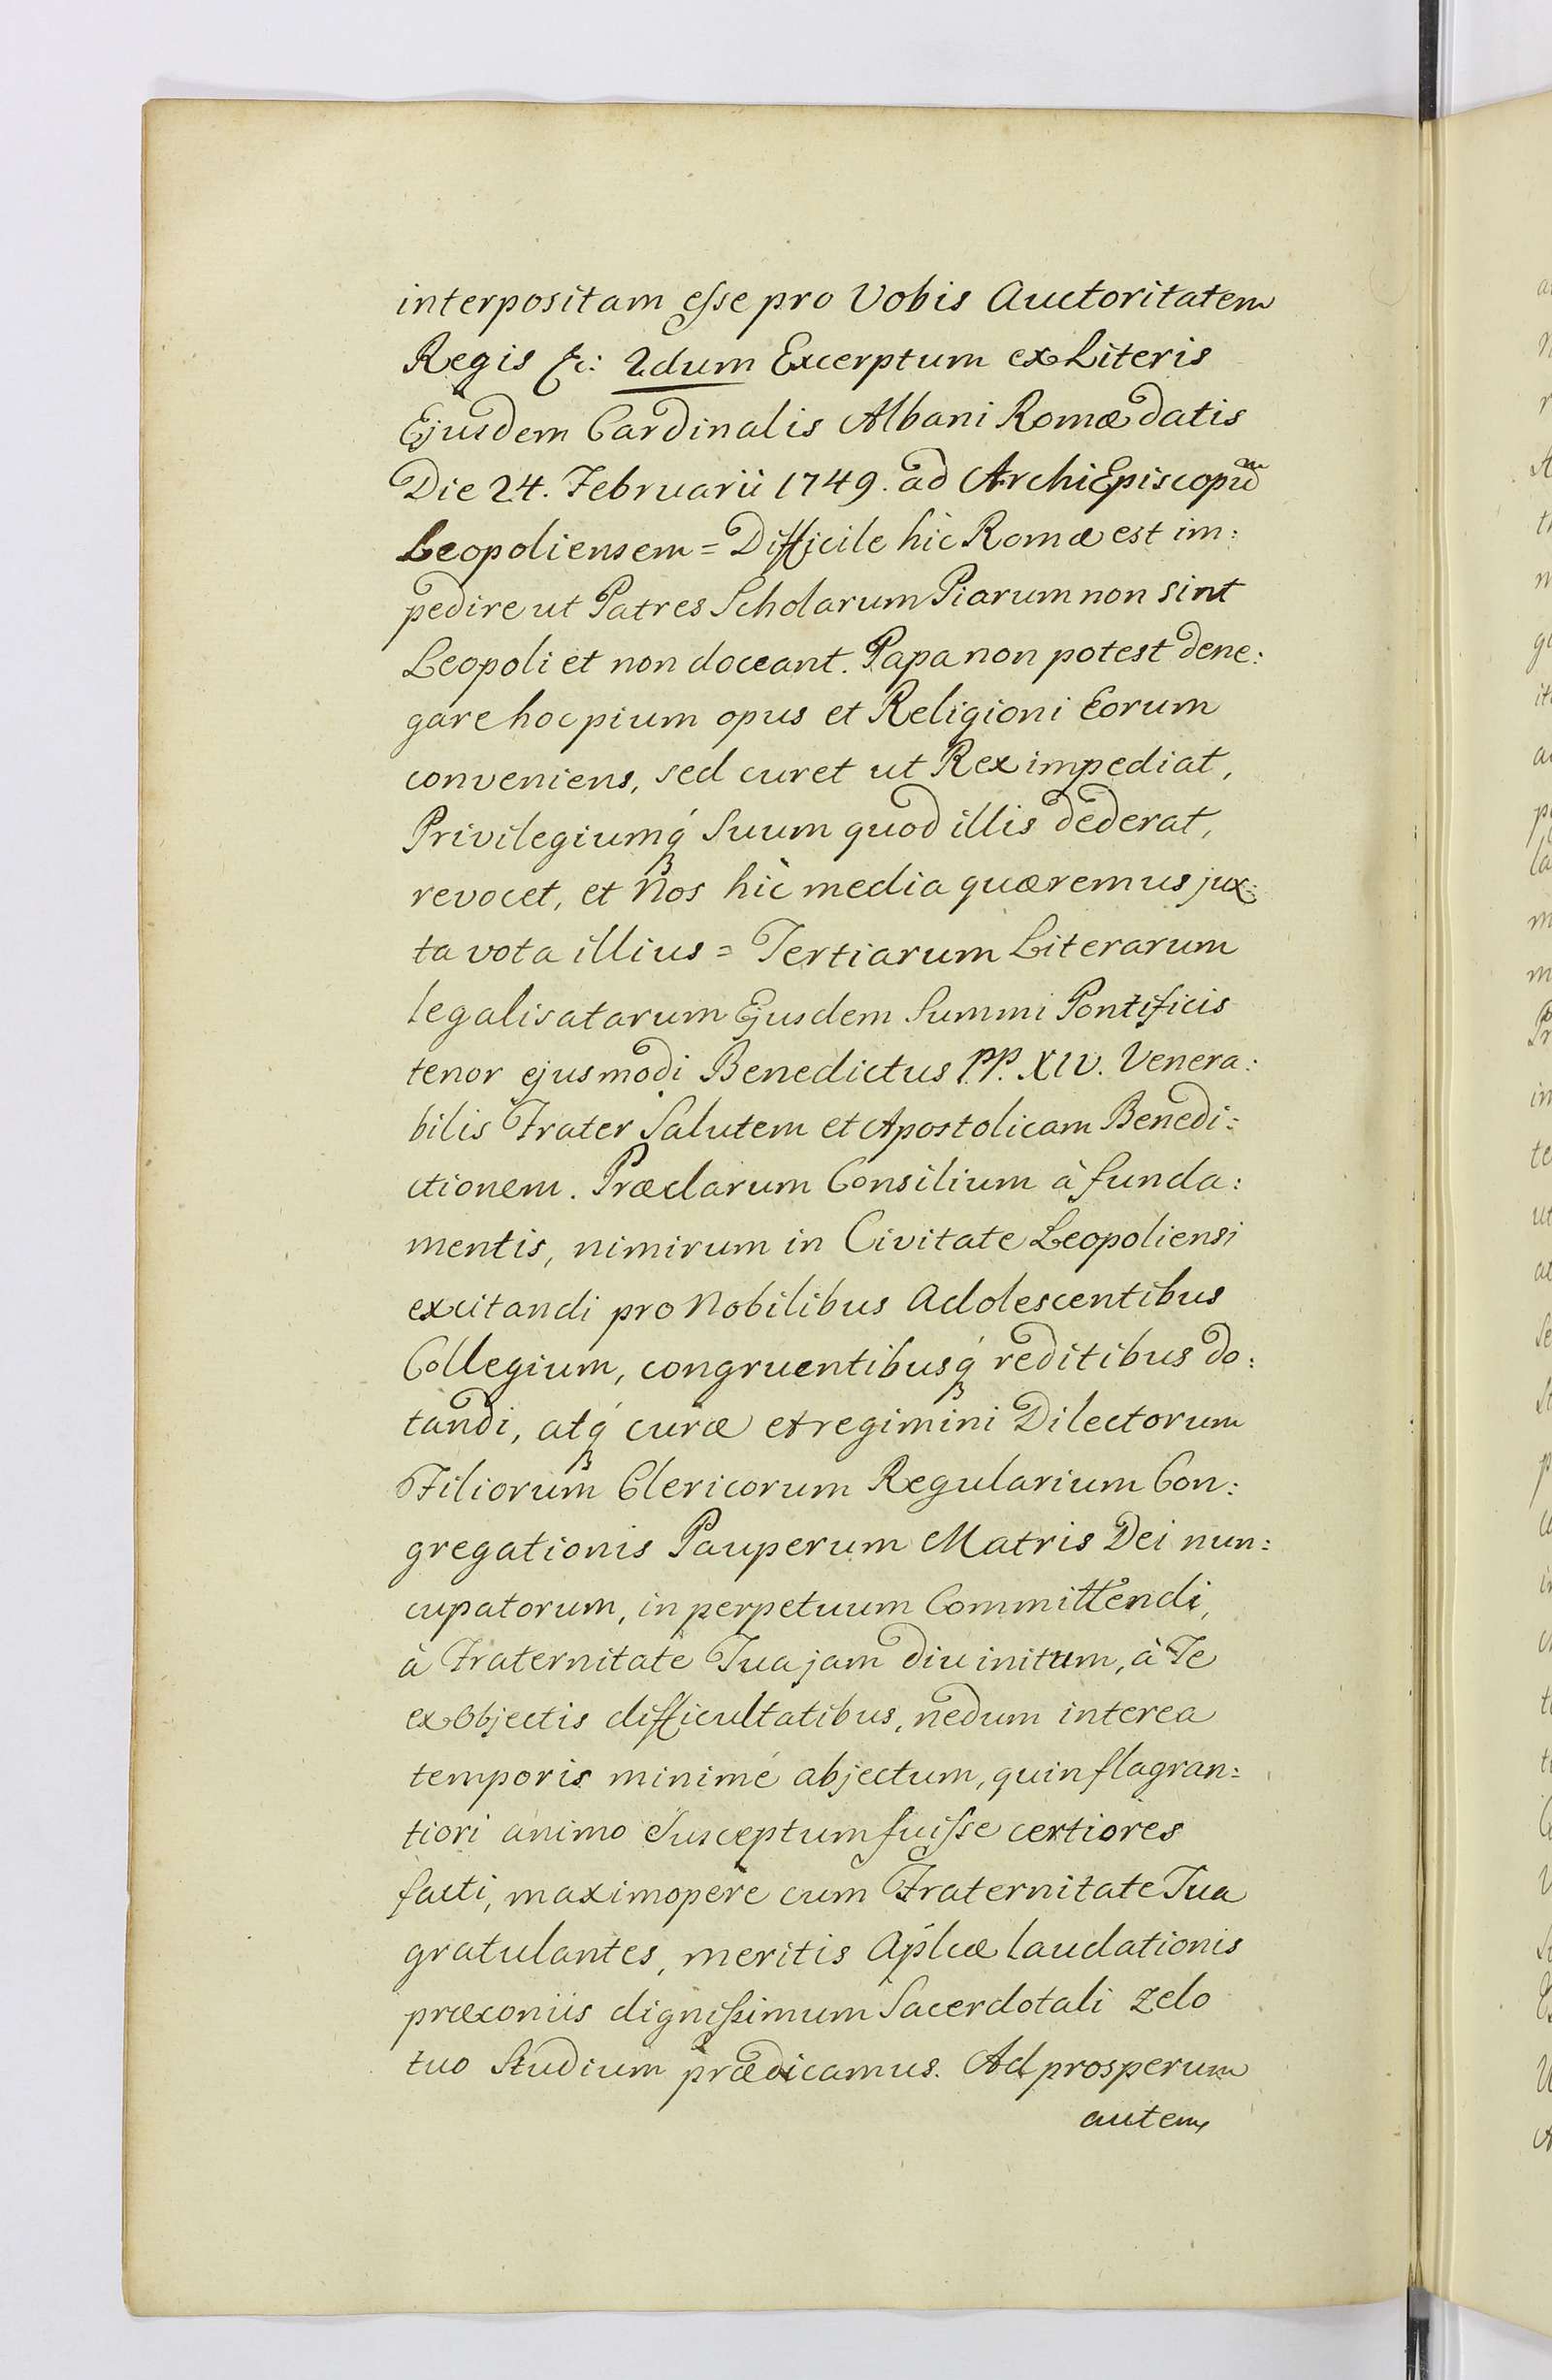 interpositam esse pro Vobis Auctoritatem
Regis &c: 2dum Excerptum ex Literis
Ejusdem Cardinalis Albani Romæ datis
Die 24. Februarii 1749. ad ArchiEpiscopũm
Leopoliensem = Difficile hìc Romæ est im:
pedire ut Patres Scholarum Piarum non sint
Leopoli et non doceant. Papa non potest dene:
gare hoc pium opus et Religioni Eorum
conveniens, sed curet ut Rex impediat,
Privilegiumq́ Suum quod illis dederat,
revocet, et Nos hìc media quæremus jux:
ta vota illius = Tertiarum Literarum
legalisatarum Ejusdem Summi Pontificis
tenor ejusmodi Benedictus PP. XIV. Venera:
bilis Frater Salutem et Apostolicam Benedi:
ctionem. Præclarum Consilium à funda:
mentis, nimirum in Civitate Leopoliensi
excitandi pro Nobilibus Adolescentibus
Collegium, congruentibusq́ reditibus do:
tandi, atq́ curæ et regimini Dilectorum
Filiorum Clericorum Regularium Con:
gregationis Pauperum Matris Dei nun:
cupatorum, in perpetuum Committendi,
à Fraternitate Tua jam diu initum, à Te
ex Objectis difficultatibus, nedum interea
temporis minimé abjectum, quin flagran:
tiori animo Susceptum fuisse certiores
facti, maximopere cum Fraternitate Tua
gratulantes, meritis Aplicæ laudationis
præconiis dignissimum Sacerdotali zelo
tuo Studium prædicamus. Ad prosperum
autem